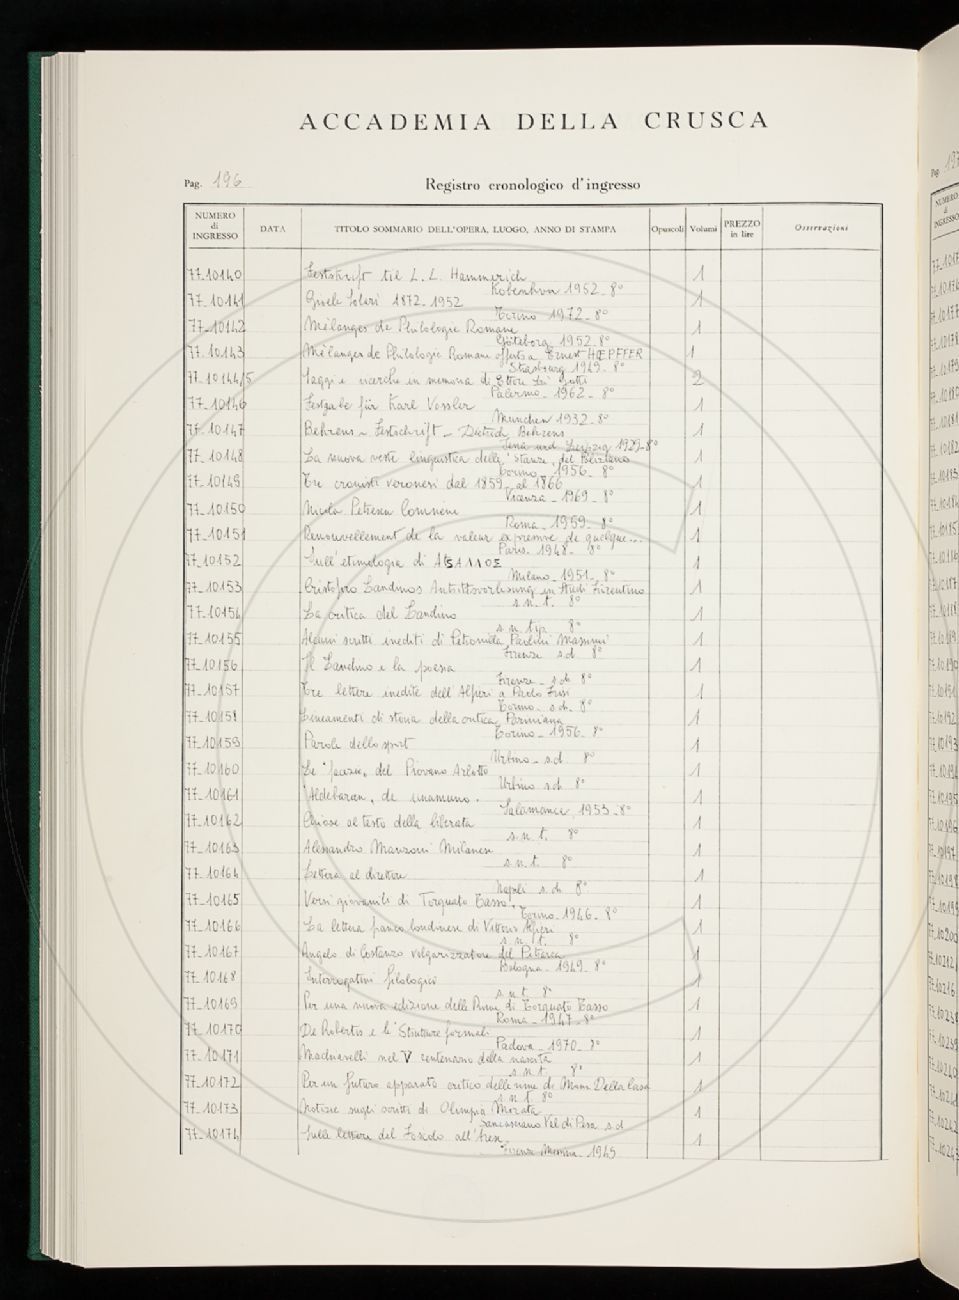 ACCADEMIA DELLA CRUSCA
Pag. 196
Registro cronologico d'ingresso
NUMERO di INGRESSO DATA TITOLO SOMMARIO DELL'OPERA, LUOGO, ANNO DI STAMPA Opuscoli Volumi PREZZO in lire Osservazioni
77-10140 Festskrift til L. L. Hammerich 1
Kobenhvn 1952 - 8°
77-10141 Gioele Solari 1872-1952 1
Torino 1972 - 8°
77-10142 Mélanges de Philologie Romane 1
Göteborg 1952 - 8°
77-10143 Mélanges de Philologie Romane offerts a Ernest HŒPFFER 1
Strasburg 1949 - 8°
77-10144/5 Saggi e ricerche in memoria di Ettore Li Gotti 2
Palermo - 1962 - 8°
77-10146 Festgabe für Karl Vossler 1
München 1932 - 8°
77-10147 Behrens - Festschrift - Dietrich Behrens 1
Jena und Leipzig 1929 - 8°
77-10148 La nuova veste linguistica delle "Stanze" del Poliziano 1
Torino - 1956 - 8°
77-10149 Tre cronisti veronesi dal 1859 al 1866 1
Vicenza - 1969 - 8°
77-10150 Nicola Petrescu Comneni 1
Roma - 1959 - 8°
77-10151 Renouvellement de la valeur expressive de quelque... 1
Paris - 1948 - 8°
77-10152 Sull'etimologia di 1
Milano - 1951 - 8°
77-10153 Cristoforo Landinos Antrittsvorlesung im Studi Fiorentino 1
s. n. t. 8°
77-10154 La critica del Landino 1
s. n. tip. 8°
77-10155 Alcuni scritti inediti di Petronilla Paolini Massimi 1
Firenze s.d. 8°
77-10156 Il Landino e la poesia 1
Firenze - s.d. 8°
77-10157 Tre lettere inedite dell'Alfieri a Paolo 1
Torino - s.d. 8°
77-10158 Lineamenti di storia della critica Pariniana 1
Torino - 1956 - 8°
77-10159 Parole dello sport 1
Urbino - s.d. 8°
77-10160 Le "facezie" del Piovano Arlotto 1
Urbino s.d. 8°
77-10161 "Aldebaran" de unamuno. 1
Salamanca 1953 - 8°
77-10162 Chiose al testo della liberata 1
s. n. t. 8°
77-10163 Alessandro Manzoni Milanese 1
s. n. t. 8°
77-10164 Lettera al direttore 1
Napoli s.d. 8°
77-10165 Versi giovanili di Torquato Tasso. 1
Torino - 1946 - 8°
77-10166 La lettera franco londinese di Vittorio Alfieri 1
s. n. t. 8°
77-10167 Angelo di Costanzo volgarizzatore del Petrarca 1
Bologna - 1949 - 8°
77-10168 Interrogativi filologici 1
s. n. t. 8°
77-10169 Per una nuova edizione delle Rime di Torquato Tasso 1
Roma - 1947 - 8°
77-10170 De Robertis e le "Strutture formali 1
Padova - 1970 - 8°
77-10171 Machiavelli nel V centenario della nascita 1
s. n. t. 8°
77-10172 Per un futuro apparato critico delle rime di Mons. Della Casa 1
s. n. t. 8°
77-10173 Notizie sugli scritti di Olimpia Morata 1
Sancasciano Val di Pesa s.d
77-10174 Sulle lettere del Foscolo all'Arese 1
Firenze 1945